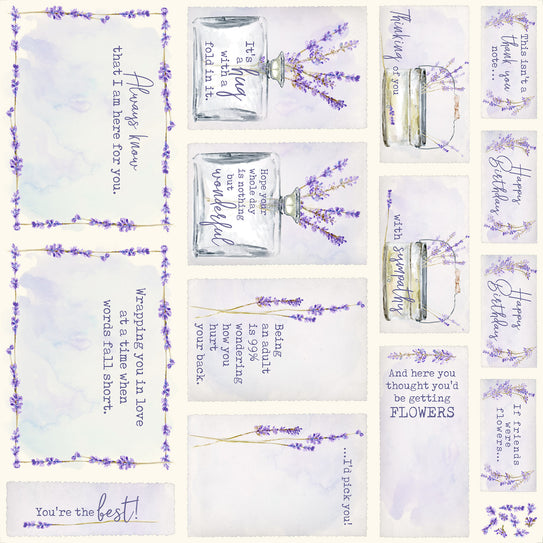 Always know
that I am here for you.
Wrapping you in love
at a time when
words fall short.
You're the best!
It's
a hug
with a
fold in it.
Hope your
whole day
is nothing
but
wonderful
Being
an adult
is 99%
wondering
how you
hurt
your back.
...I'd pick you!
Thinking
of you
with sympathy
And here you
thought you'd
be getting
FLOWERS
This isn't a
thank you
note...
Happy
Birthday
Happy
Birthday
If friends
were
flowers...